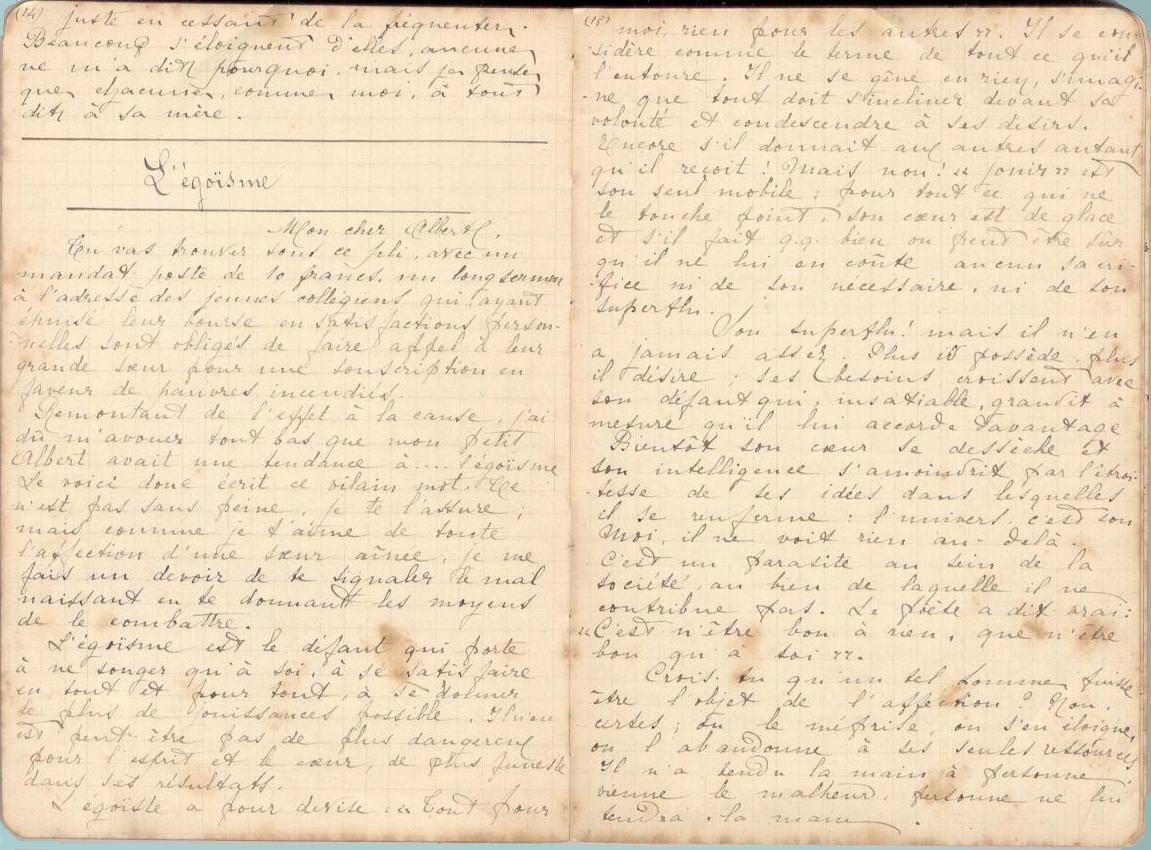 (14)
juste en cessant de la fréquenter.
Beaucoup s'éloignent d'elles, aucune
ne m'a dit pourquoi, mais je pense
que chacune, comme moi, à tout
dit à sa mère.
L'égoïsme
Mon cher Albert,
Tu vas trouver sous ce pli, avec un
mandat poste de 10 francs, un long sermon
à l'adresse des jeunes collégiens qui ayant
épuisé leur bourse en satisfactions person-
nelles sont obligés de faire appel à leur
grande sœur pour une souscription en
faveur de pauvres incendiés.
Remontant de l'effet à la cause, j'ai
dû m'avouer tout bas que mon petit
Albert avait une tendance à.... l'égoïsme
Le voici donc écrit ce vilain mot. Ce
n'est pas sans peine, je te l'assure;
mais comme je t'aime de toute
l'affection d'une sœur aînée, je me
fais un devoir de te signaler le mal
naissant en te donnant les moyens
de le combattre.
L'égoïsme est le défaut qui porte
à ne songer qu'à soi, à se satisfaire
en tout et pour tout, à se donner
le plus de jouissances possible. Il n'en
est peut-être pas de plus dangereux
pour l'esprit et le cœur, de plus funeste
dans ses résultats.
L'égoïste a pour devise : "Tout pour
(15)
moi, rien pour les autres". Il se con-
sidère comme le terme de tout ce qu'il
l'entoure. Il ne se gêne en rien, s'imagi-
-ne que tout doit s'incliner devant sa
volonté et condescendre à ses désirs.
Encore s'il donnait aux autres autant
qu'il reçoit! Mais non! "jouir" est
son seul mobile; pour tout ce qui ne
le touche point, son cœur est de glace
et s'il fait q.q. bien on peut être sûr
qu'il ne lui en coûte aucun sacri-
-fice ni de son nécessaire, ni de son
superflu.
Son superflu! mais il n'en
a jamais assez. Plus il possède, plus
il désire; ses besoins croissent avec
son défaut qui, insatiable, grandit à
mesure qu'il lui accorde davantage
Bientôt son cœur se dessèche et
son intelligence s'amoindrit par l'étroi-
tesse de ses idées dans lesquelles
il se renferme : l'univers, c'est son
Moi, il ne voit rien au-delà.
C'est un parasite au sein de la
société, au bien de laquelle il ne
contribue pas. Le poète a dit vrai:
"C'est n'être bon à rien, que n'être
bon qu'à soi".
Crois-tu qu'un tel homme puisse
être l'objet de l'affection? Non.
certes; on le méprise, on s'en éloigne,
on l'abandonne à ses seules ressources.
Il n'a tendu la main à personne
vienne le malheur, personne ne lui
tendra la main.